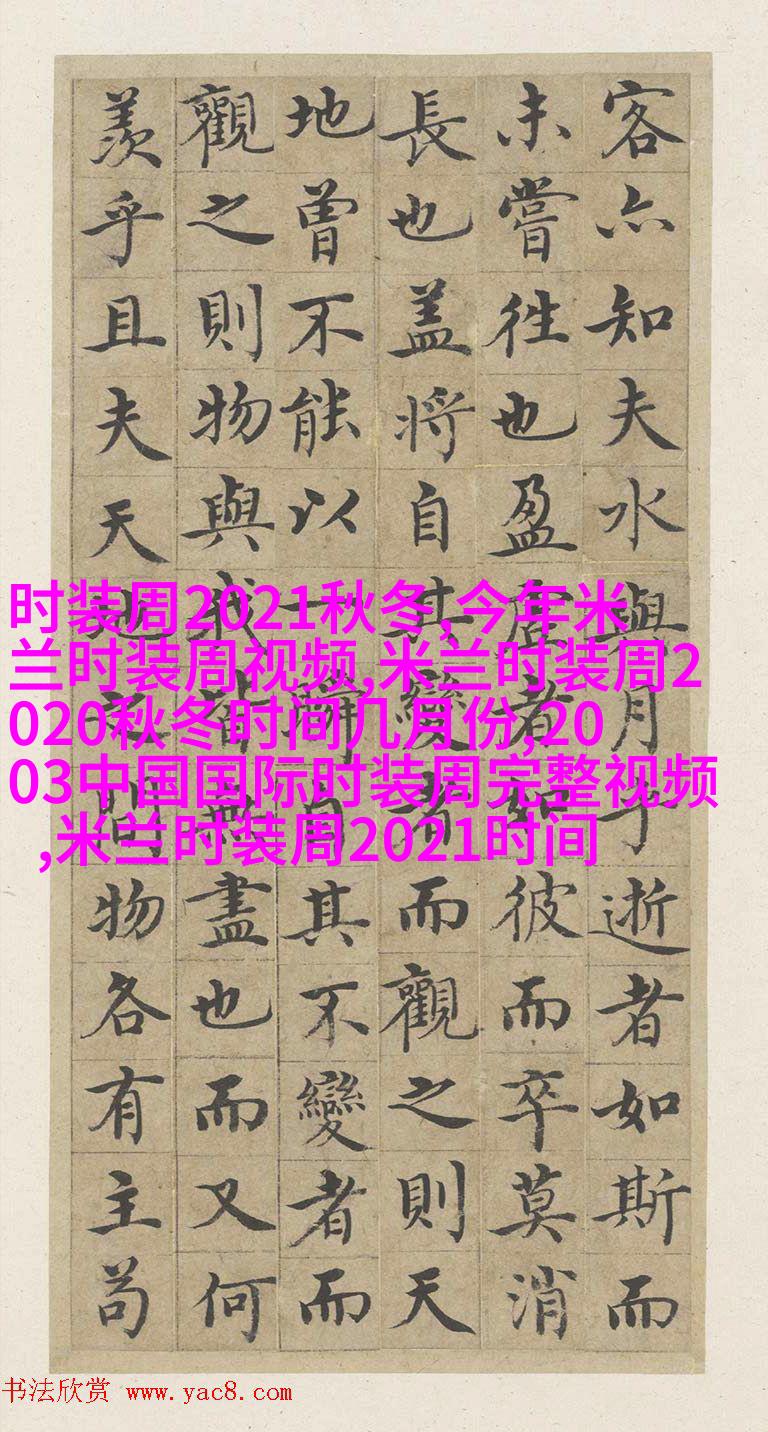 客亦知夫水與月乎逝者如斯而
未嘗徃也盈虛者如彼而卒莫消
長也盖將自其變者而觀之則天
地曾不能以一瞬自其不變者而
觀之則物與我皆無盡也而又何
羨乎且夫天地之間物各有主苟
时装周2021秋冬,今年米
兰时装周视频,米兰时装周2
020秋冬时间几月份,20
03中国国际时装周完整视频
,米兰时装周2021时间
书法欣赏 www.yac8.com